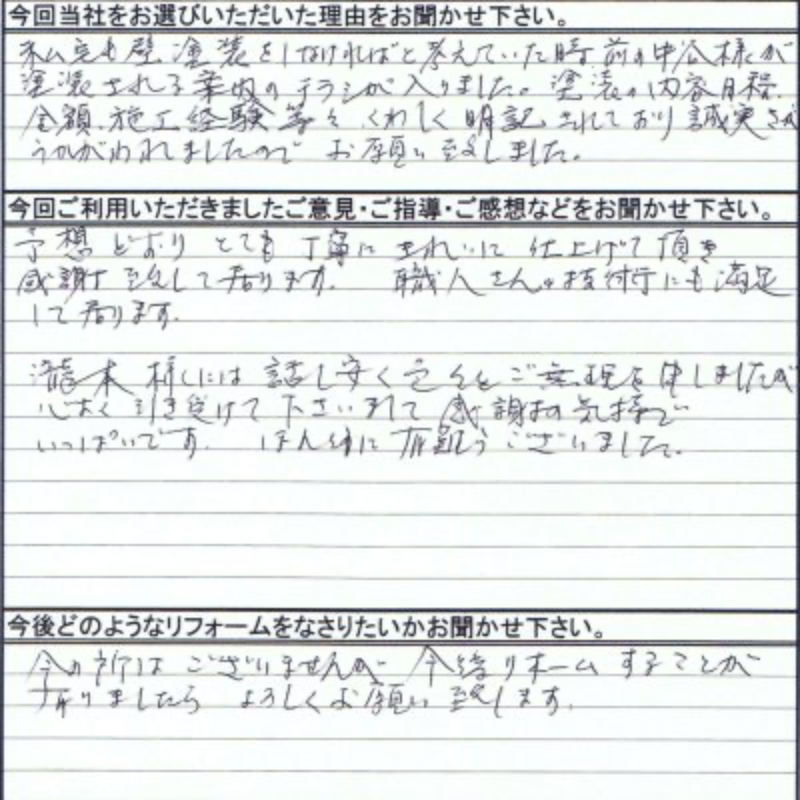 今回当社をお選びいただいた理由をお聞かせ下さい。
私宅も壁塗装をしなければと考えていた時、前の中谷様が
塗装される案内のチラシが入りました。塗装の内容、日程、
金額、施工経験等々くわしく明記されており誠実さが
うかがわれましたので お願い致しました。
今回ご利用いただきましたご意見・ご指導・ご感想などをお聞かせ下さい。
予想どおり とても丁寧に きれいに 仕上げて頂き
感謝致して居ります。 職人さんの技術にも満足
して居ります。
瀧本様には話し安く色々とご無理を申しましたが
心よく引き受けて下さいまして 感謝の気持で
いっぱいです。 ほんとに有難うございました。
今後どのようなリフォームをなさりたいかお聞かせ下さい。
今の所は ございませんが 今後リホームすることが
有りましたら よろしくお願い致します。